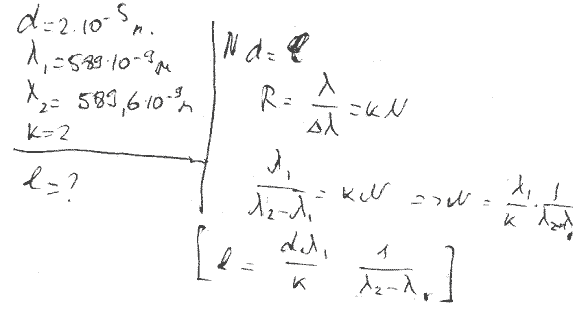 d=2·10⁻⁵ м.
λ₁=589·10⁻⁹м
λ₂= 589,6·10⁻⁹м
k=2
l=?
N d= l
R= λ/Δλ =kN
λ₁/(λ₂-λ₁) = kN => N = λ₁/k · 1/(λ₂-λ₁)
[ l = dλ₁/k 1/(λ₂-λ₁) ]